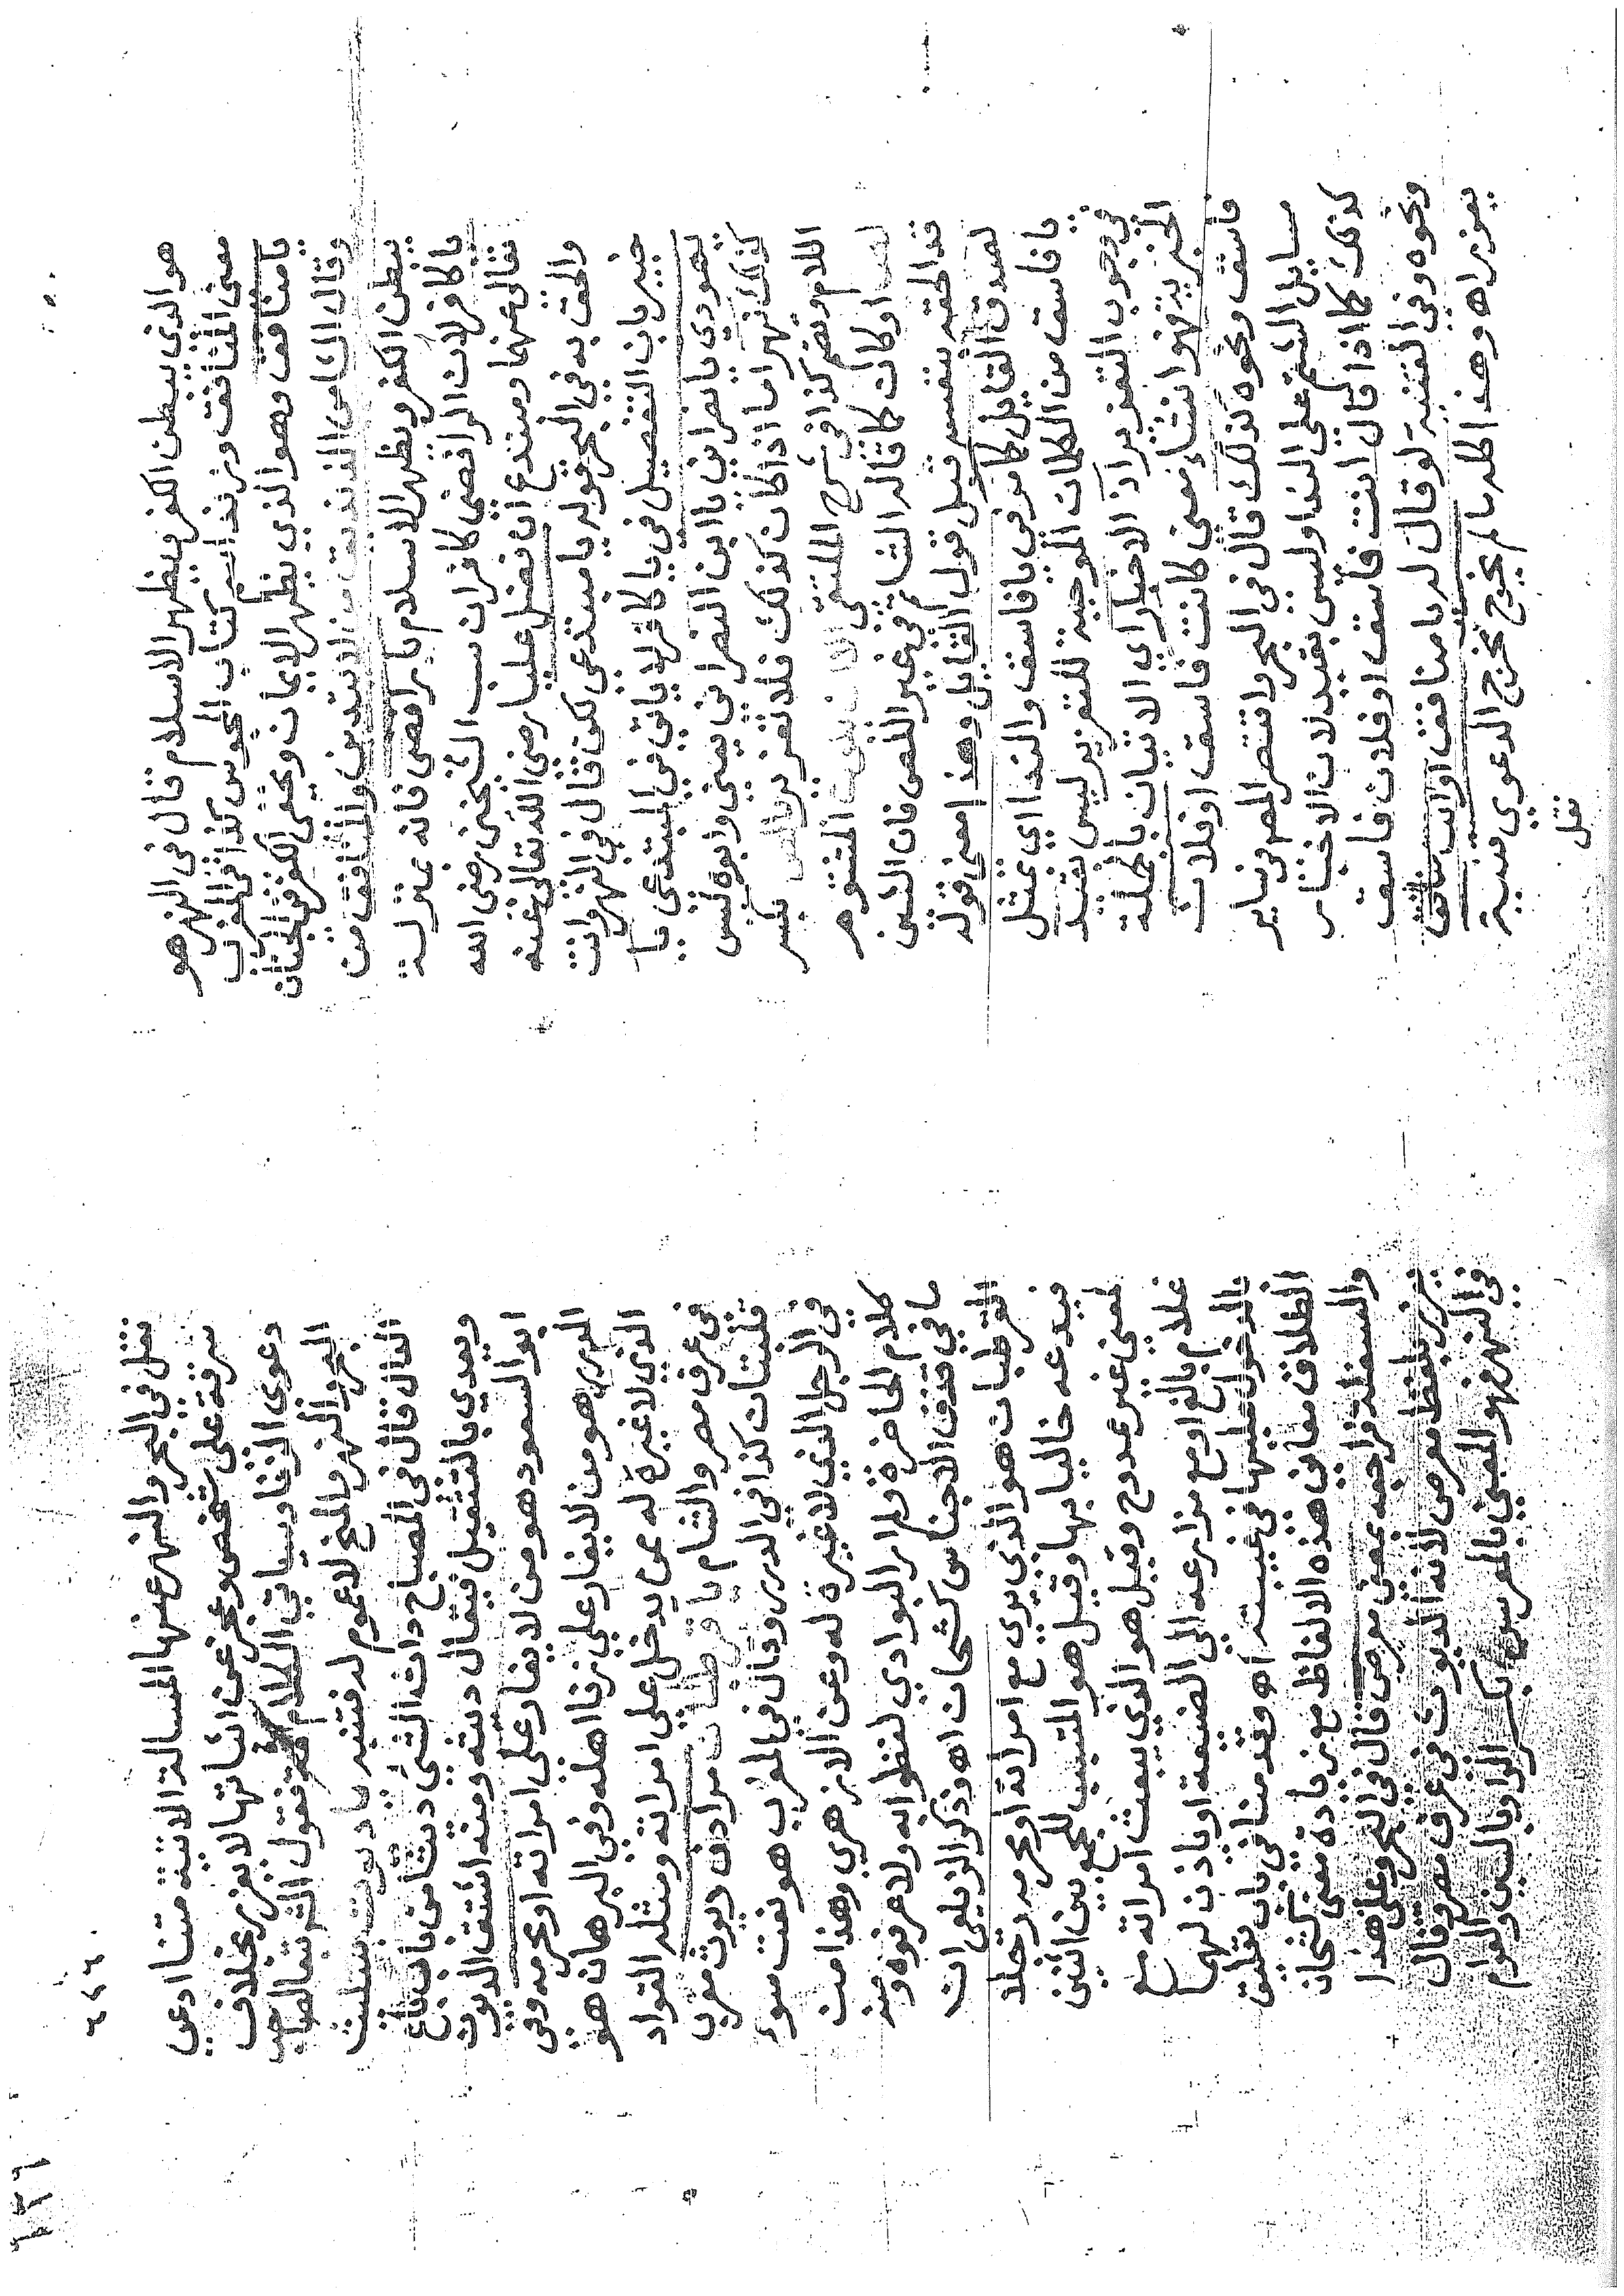 هو الذي يبطن الكفر ويظهر الاسلام قال في النهر هو
معنى المنافق وزند اسم كتاب المجوس كذا في المغرب
يا منافق وهو الذي يظهر الايمان ويخفي الكفر في الجنان
وقال الشامي الزنديق من لا يتدين والمنافق من
يبطن الكفر ويظهر الاسلام يا رافضي فانه بمنزلة
يا كافر لان الرافضي كافر ان سب الشيخين رضي الله
تعالى عنهما ومبتدع ان فضل عليا رضي الله تعالى عنه
والحق به في البحر قوله يا مبتدعي لكن قال في النهر وانت
خبير بان التفصيل في يا كافر لا ياتي في المبتدعي يا
يهودي يا نصراني يا ابن النصراني يعني وابوه ليس
كذلك نهر اما اذا كان كذلك فلا تعزير يا لص بكسر
اللام وتضم كذا في شرح الملتقى
لصا او كان كما قاله الشامي في غير اللص فان الشين
قد الحقه بنفسه قبل قول القايل وهذا معنى قوله
لصدق القايل كما مر في يا فاسق والندا اي بمثل
يا فاسق من الكلمات الموجبة للتعزير ليس بقيد
في وجوب التعزير اذ الاخبار اي الاتيان بالجملة
الخبرية فهو انشاء معنى كانت فاسق او فلان
فاسق ونحوه كذلك قال في البحر واقتصر المصر في ساير
مسايل الشتم على الندا وليس بقيد لان الاخبار
كذلك كما اذا قال انت فاسق او فلان فاسق
ونحوه وفي القنية لو قال له يا منافق او انت منافق
يعزر اه وهذا كله ما لم يخرج مخرج الدعوى مسية
نقل
٢٤٦
نقل في البحر والنهر عنها المسالة الاتية متنا ادعى
سرقة على شخص وعجز عن اثباتها لا يعزر بخلاف
دعوى الزنا وسياتي الكلام فيه فقول الشربنالي صاحب
البحر والنهر والمنح لا عموم له فتنبه يا ديوث بتثليث
الدال قال في المصباح داث الشي ديثا من باب باع
ويعدي بالتثقيل فيقال ديثه ومنه اشتق الديوث
ابو السعود هو من لا يغار على امراته او محرمه وفي
الدرر هو من لا يغار على زنا اهله وفي البرهان هو
الذي لا غيرة له ممن يدخل على امراته ومثله القواد
في عرف مصر والشام يا قرطبان مرادف ديوث معرب
قلتبان كذا في الدرر وقال في المغرب هو نعت سوء
في الرجل الذي لا غيرة له وعن الازهري وهذا من
كلام الحاضرة فلم ار البوادي لفظوا به ولا عرفوه ومنه
ما في قذف الاجناس كشخان اه وذكر الزيلعي ان
القرطبان هو الذي يرى مع امراته او محرمه رجلا
فيدعه خاليا بها وقيل هو المتسبب للجمع بين اثنين
لمعنى غير ممدوح وقيل هو الذي يبعث امراته مع
غلام بالغ او مع مزارعه الى الضيعة او ياذن لهما
بالدخول عليها في غيبته اه وقدمنا في باب تعليق
الطلاق معاني هذه الالفاظ مع زيادة معنى كشخان
والسفلة فراجعه بمعنى معرص قال في البحر وعلى هذا
يعزر بلفظ معرص لانه الديوث في عرف مصر وقال
في النهر فهو المعني بالمعرس بكسر الراء وبالسين والعوام